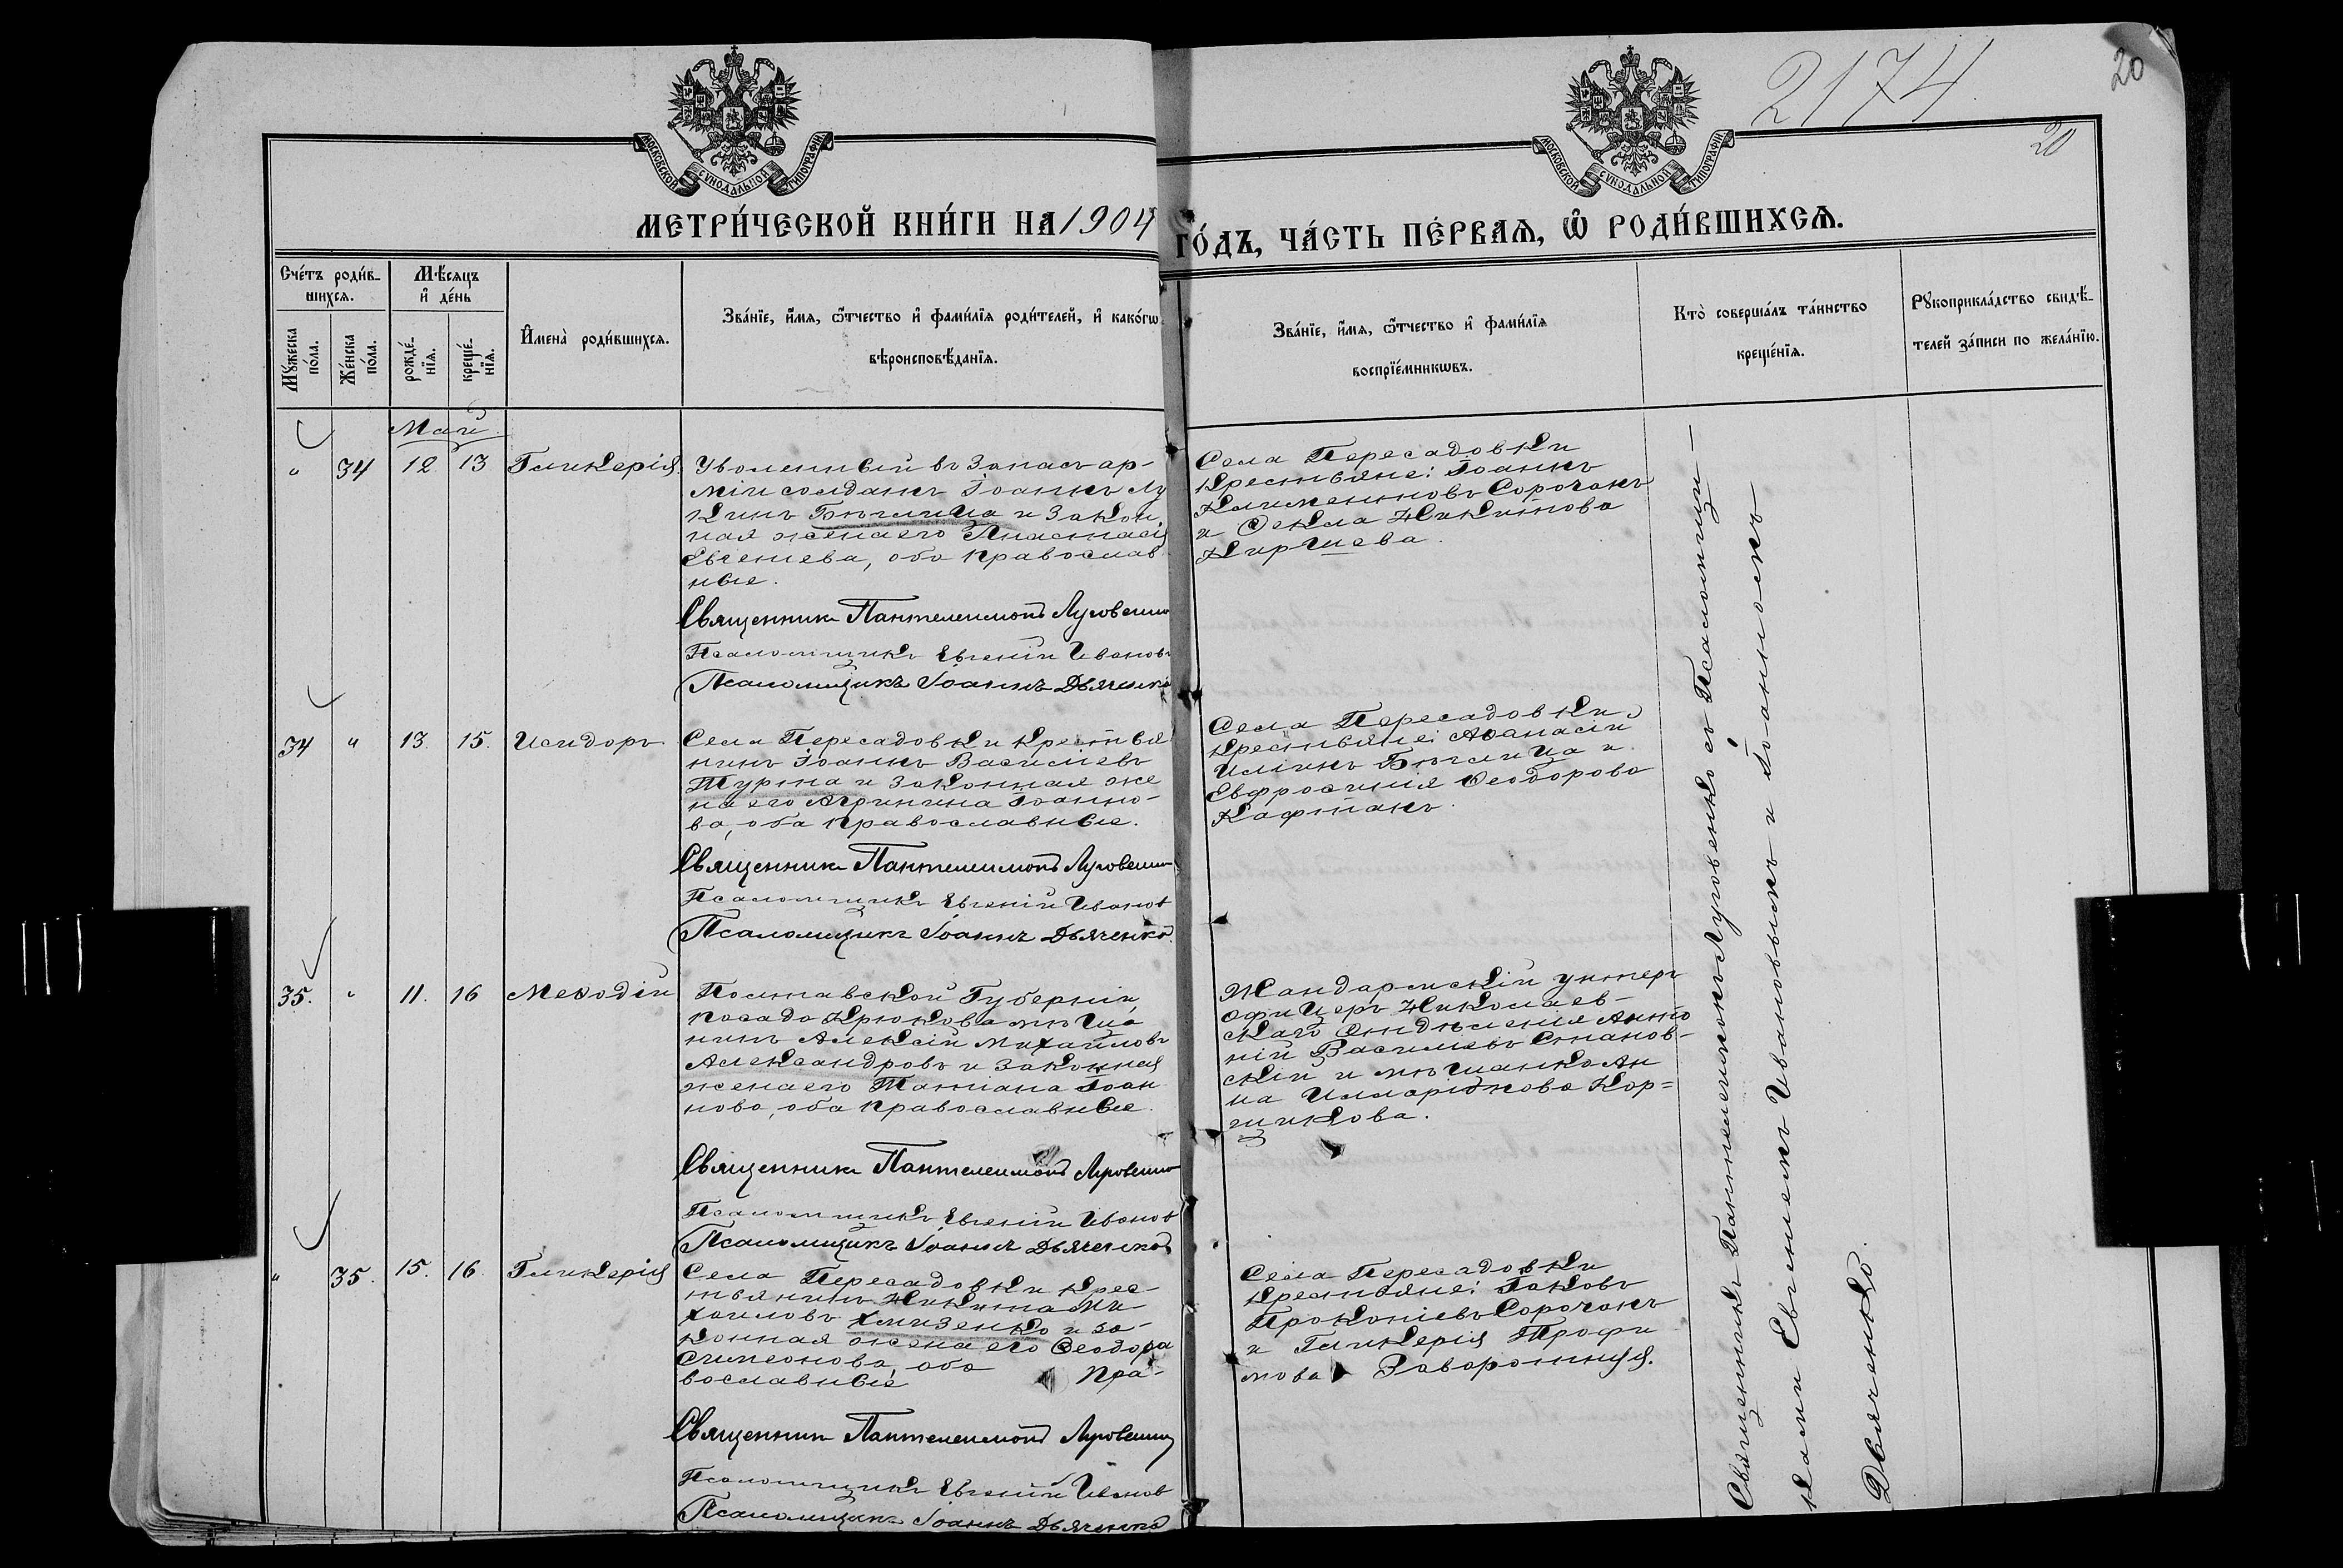 2174
20
20
МОСКОВСКОЙ СѴНОДАЛЬНОЙ ТИПОГРАФІИ
МОСКОВСКОЙ СѴНОДАЛЬНОЙ ТИПОГРАФІИ
МЕТРИ́ЧЕСКОЙ КНИ́ГИ НА 1904 ГО́ДЪ, ЧА́СТЬ ПЕ́РВАѦ, Ѽ РОДИ́ВШИХСѦ.
Счéтъ роди́в-
шихсѧ.
Мꙋ́жеска
по́ла.
Же́нска
по́ла.
Мѣ́сѧцъ
и҆ де́нь
рожде́-
нїѧ.
креще́-
нїѧ.
И҆мена̀ роди́вшихсѧ.
Зва́нїе, и҆́мѧ, ѻ҆́тчество и҆ фами́лїѧ роди́телей, и҆ како́гѡ
вѣроисповѣ́данїѧ.
Зва́нїе, и҆́мѧ, ѻ҆́тчество и҆ фами́лїѧ
воспрїе́мникѡвъ.
Кто̀ соверша́лъ та́инство
креще́нїѧ.
Рꙋкоприкла́дство свидѣ́-
телей за́писи по жела́нїю.
Май
" 34 12 13 Гликерія
Уволенный въ запасъ ар-
міи солдатъ Іоаннъ Лу
кинъ Бѣглица и закон.
ная жена его Анастасія
Евгеніева, оба православ
ные.
Священникъ Пантелеимонъ Луговенко
Псаломщикъ Евгеній Ивановъ
Псаломщикъ Іоаннъ Дьяченко
Села Пересадовки
крестьяне: Іоаннъ
Климентовъ Сорочанъ
и Ѳекла Никитова
Киршева.
34 " 13. 15. Исидоръ.
Села Пересадовки крестья
нинъ Іоаннъ Васильевъ
Турта и законная же
на его Агрипина Іоанно-
ва, оба православные.
Священникъ Пантелеимонъ Луговенко
Псаломщикъ Евгеній Иванов
Псаломщикъ Іоаннъ Дьяченко.
Села Пересадовки
крестьяне: Аѳанасій
Илiинъ Бѣглица и
Евфросинія Ѳеодорова
Кафтанъ.
35. " 11. 16 Меѳодій
Полтавской Губерніи,
посада Крюкова мѣща
нинъ Алексій Михайловъ
Александровъ и законная
жена его Татіана Іоан
нова, оба православные.
Священникъ Пантелеимонъ Луговенко
Псаломщикъ Евгеній Иванов
Псаломщикъ Іоаннъ Дьяченко
Жандармскій унтеръ
офицеръ Николаев-
скаго Отдѣленія Анто
ній Васильевъ Станов-
скій и мѣщанка Ан
на Илларіонова Кор=
щикова.
" 35. 15. 16. Гликерія
Села Пересадовки крес-
тьянинъ Никита Ми-
хаиловъ Хмизенко и за-
конная жена его Ѳеодора
Симеонова, оба Пра-
вославные
Священникъ Пантелеимонъ Луговенко
Псаломщикъ Евгеній Иванов
Псаломщикъ Іоаннъ Дьяченко
Села Пересадовки
крестьяне: Іаковъ
Прокопіевъ Сорочанъ
и Гликерія Трофи
мова Заворотняя.
Священникъ Пантелеимонъ Луговенко съ Псаломщи-
ками Евгеніемъ Ивановымъ и Іоанномъ
Дьяченко.